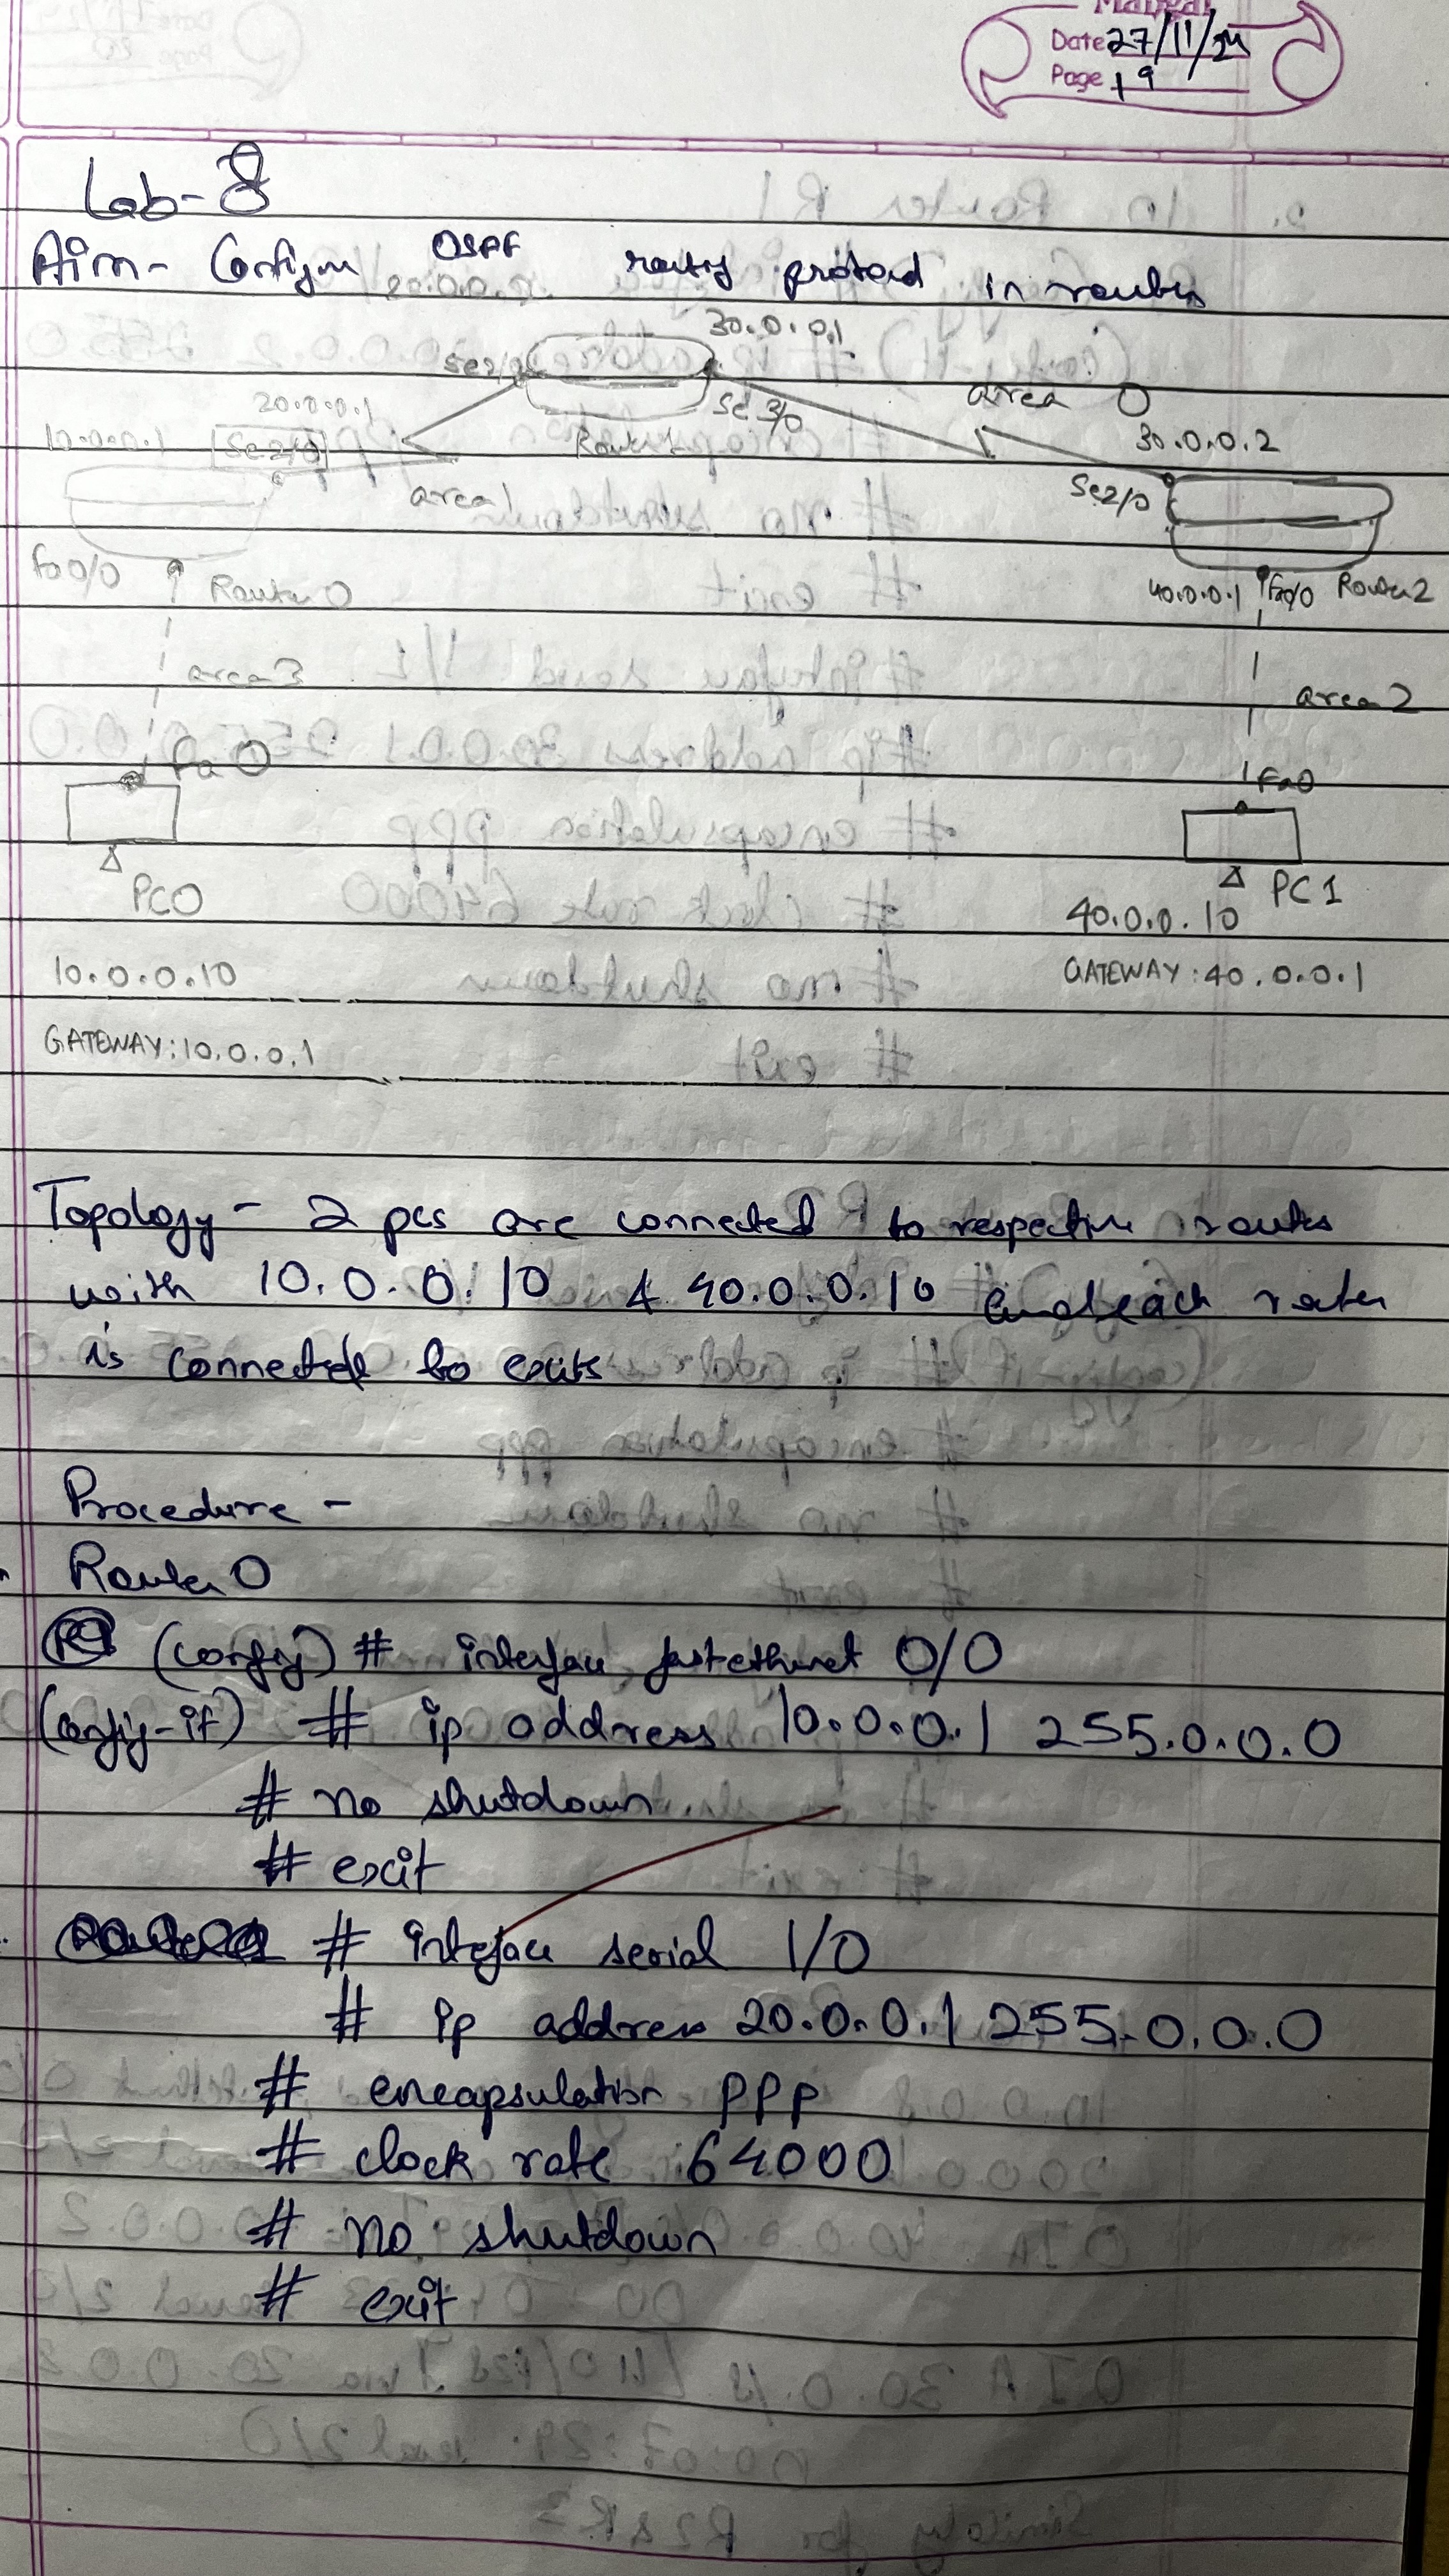 Date 27/11/24
Page 19
Lab-8
Aim- Configure OSPF routing protocol in routers
30.0.0.1
Se2/0
Se3/0
area 0
20.0.0.1
10.0.0.1
Se2/0
Router1
30.0.0.2
Se2/0
area 1
Fa0/0
Router0
40.0.0.1 Fa0/0 Router2
area 3
area 2
Fa0
Fa0
PC0
PC1
40.0.0.10
10.0.0.10
GATEWAY:40.0.0.1
GATEWAY:10.0.0.1
Topology- 2 pcs are connected to respective routers
with 10.0.0.10 & 40.0.0.10 and each router
is connected to
Procedure -
Router 0
(config) # interface fastethernet 0/0
(config-if) # ip address 10.0.0.1 255.0.0.0
# no shutdown
# exit
# interface serial 1/0
# ip address 20.0.0.1 255.0.0.0
# encapsulation ppp
# clock rate 64000
# no shutdown
# exit